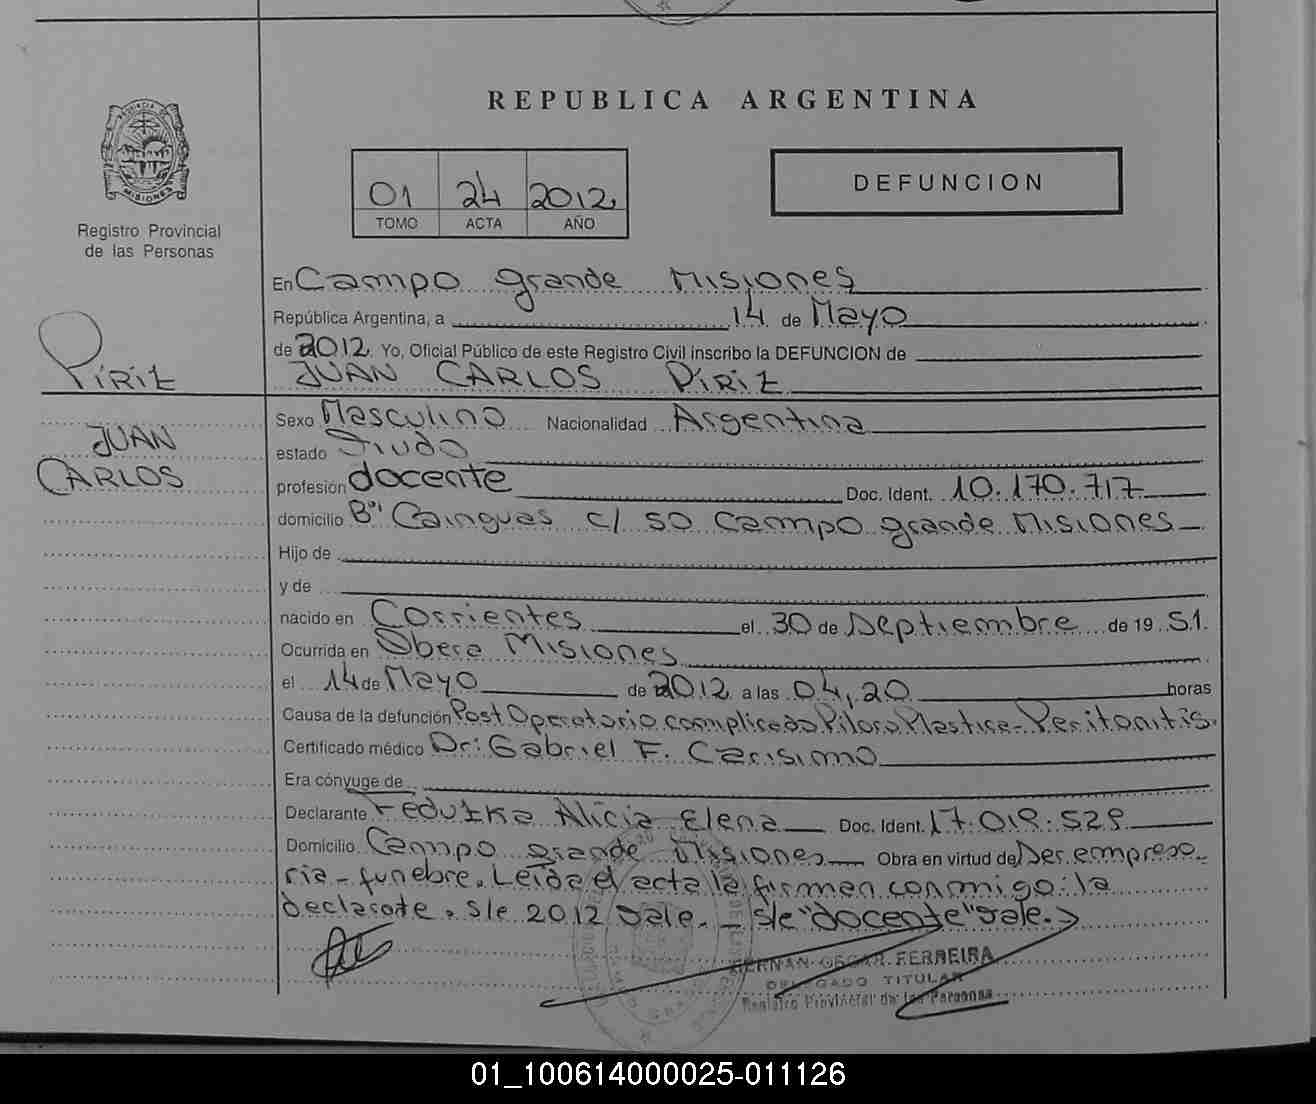 REPUBLICA ARGENTINA
PROVINCIA DE
MISIONES
Registro Provincial
de las Personas
01 24 2012
TOMO ACTA AÑO
DEFUNCION
En Campo grande Misiones
República Argentina, a 14 de Mayo
de 2012 Yo, Oficial Público de este Registro Civil inscribo la DEFUNCION de
Píriz JUAN CARLOS Píriz
Sexo Masculino Nacionalidad Argentina
JUAN
estado Viudo
CARLOS
profesión docente Doc. Ident. 10.170.717
domicilio Bº Cainguas c/ 50 Campo grande Misiones
Hijo de
y de
nacido en Corrientes el 30 de Septiembre de 19 51.
Ocurrida en Obera Misiones
el 14 de Mayo de 2012 a las 04,20 horas
Causa de la defunción Post Operatorio complicado Piloro Plastica - Peritonitis.
Certificado médico Dr: Gabriel F. Carisimo
Era cónyuge de
Declarante Feduzka Alicia Elena Doc. Ident. 17.019.529
Domicilio Campo grande Misiones Obra en virtud de Ser empresa
ria - funebre. Leída el acta la firman conmigo: la
declarate. S/e 2012 Vale. - S/e "docente" Vale.
HERNAN OSCAR FERREIRA
DELEGADO TITULAR
Registro Provincial de las Personas
01_100614000025-011126